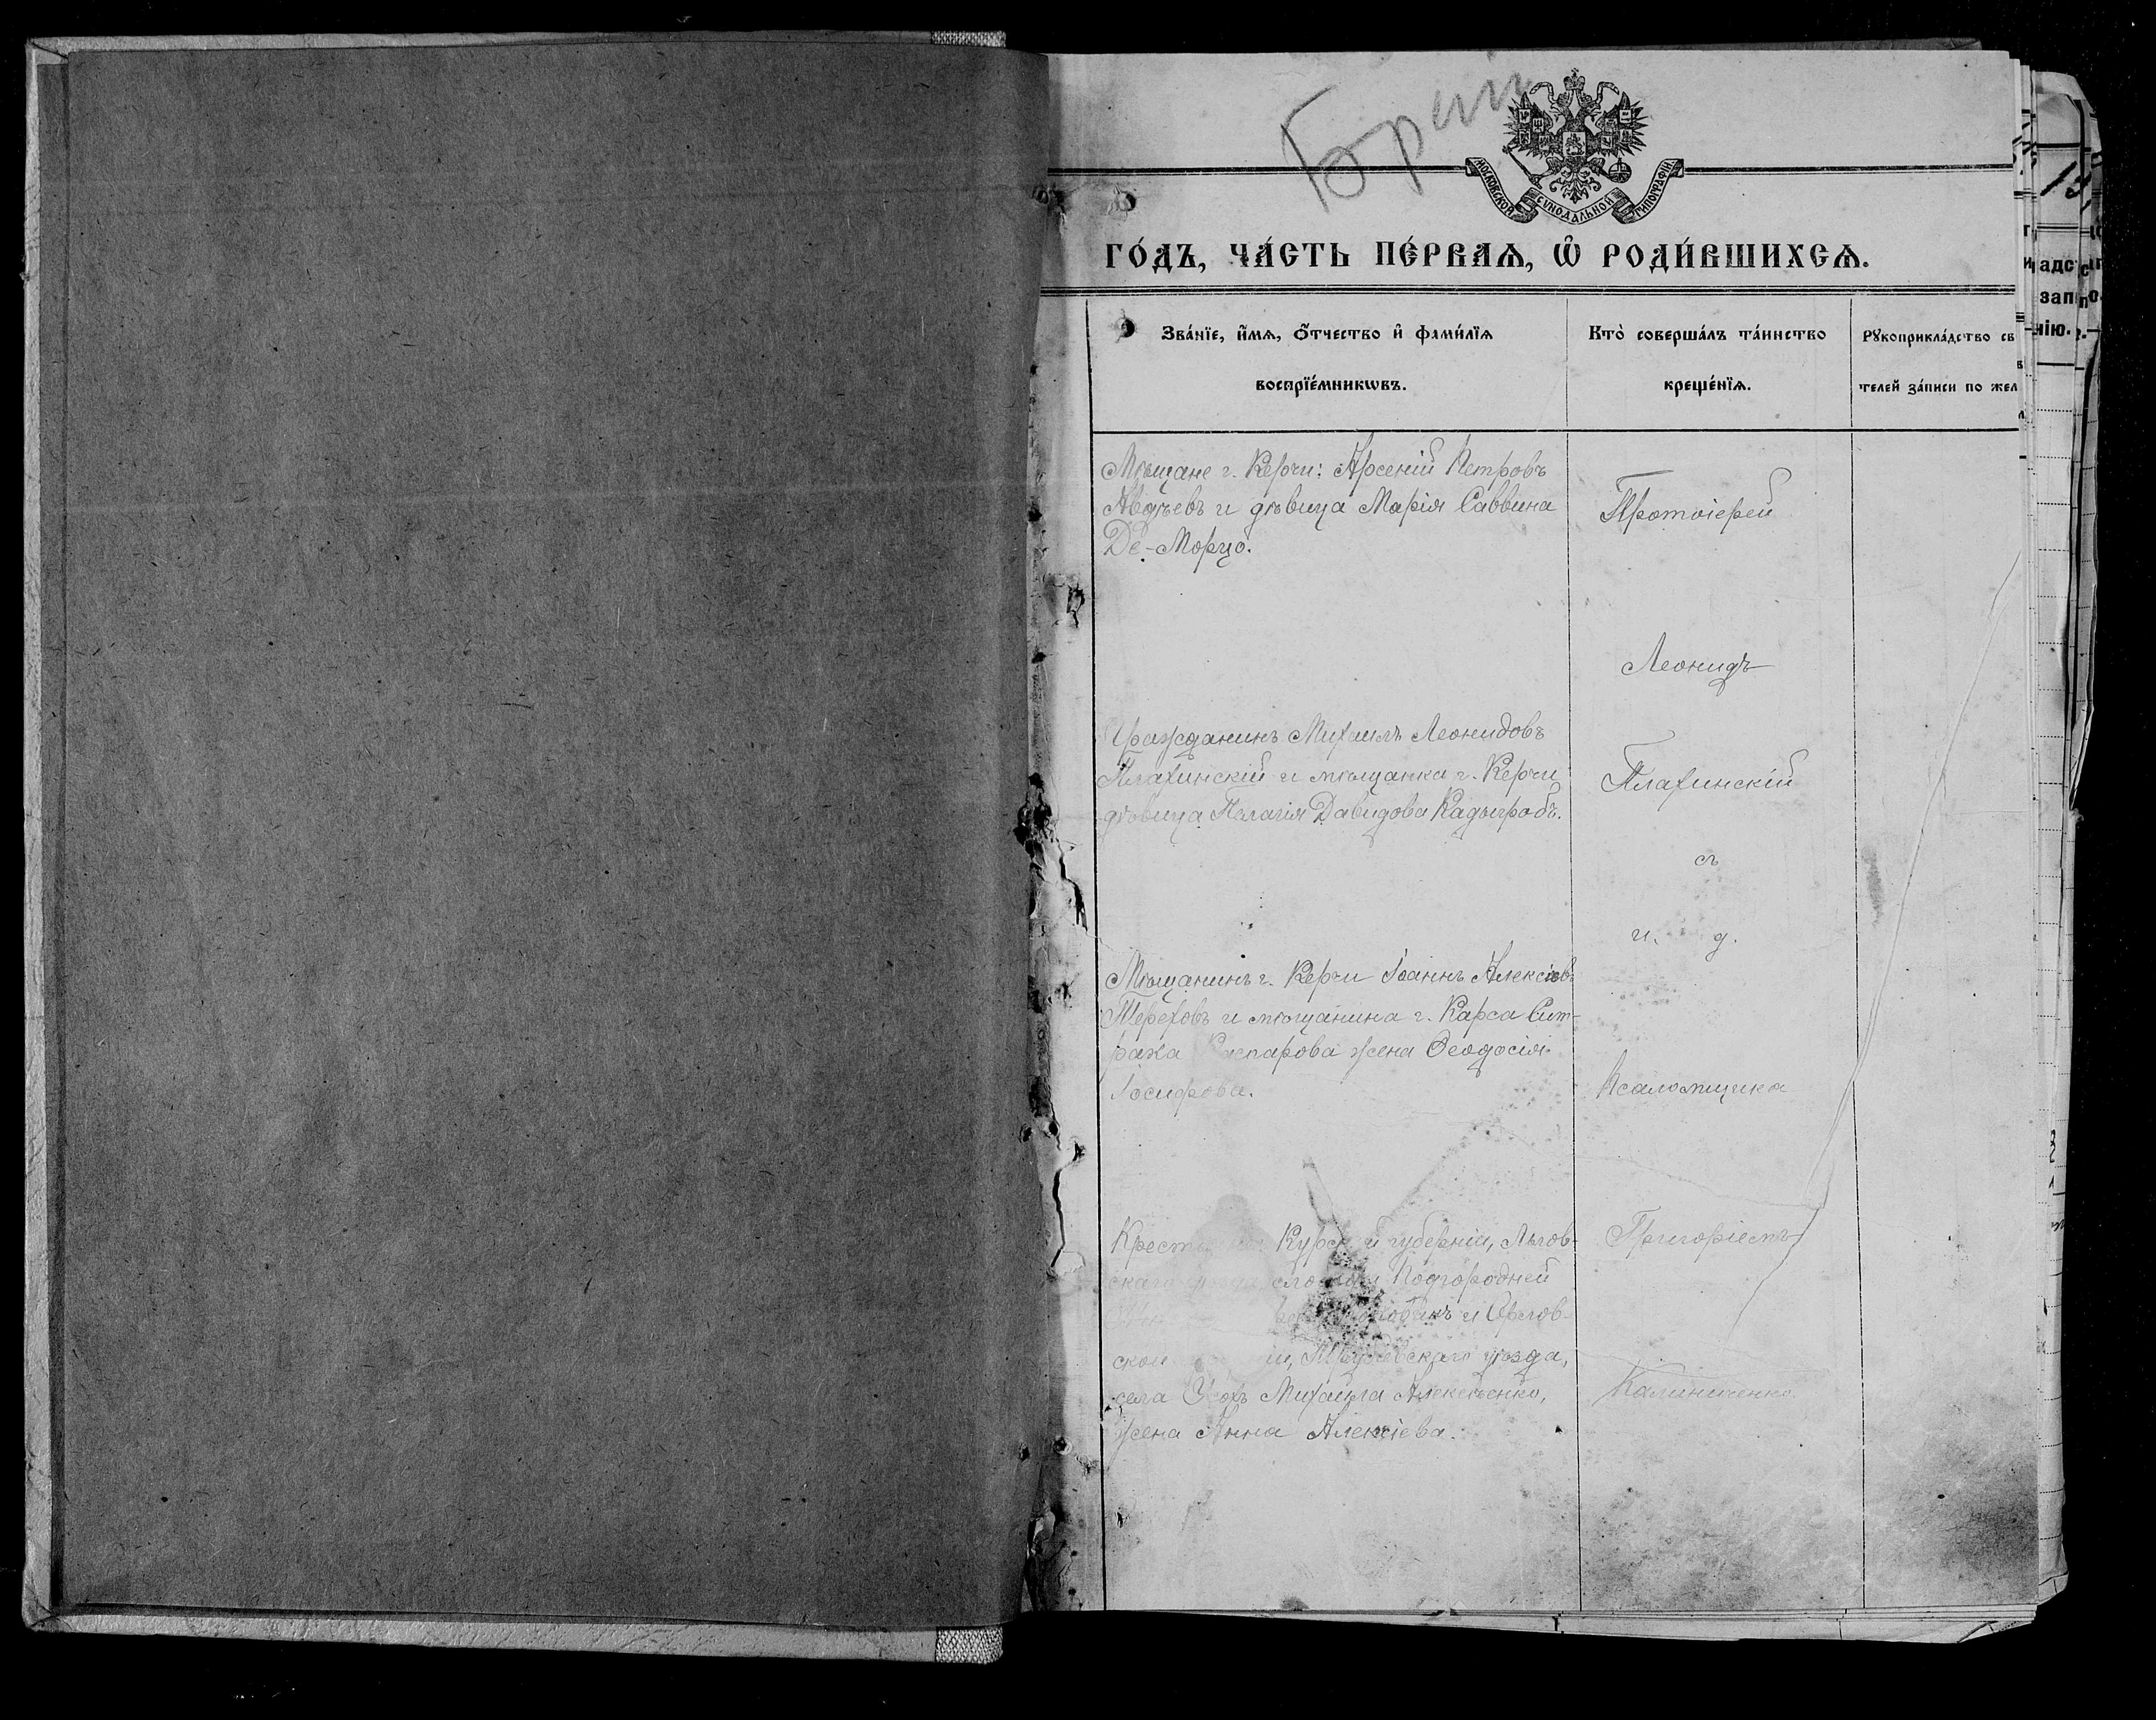 МОСКОВСКОЙ СѴНОДАЛЬНОЙ ТИПОГРАФІИ
ГО́ДЪ, ЧА́СТЬ ПЕ́РВАѦ, Ѡ҆ РОДИ́ВШИХСѦ.
Зва́нїе, и҆́мѧ, ѻ҆́тчество и҆ фами́лїѧ
воспрїе́мникѡвъ.
Кто̀ соверша́лъ та́инство
креще́нїѧ.
Рꙋкоприкла́дство св
телей за́писи по жел
Мѣщане г. Керчи: Арсеній Петровъ
Авдѣевъ и дѣвица Марія Саввина
Де-Морцо.
Протоіерей
Леонидъ
Гражданинъ Михаилъ Леонидовъ
Плахинскій и мѣщанка г. Керчи
дѣвица Пелагія Давидова Кадыгробъ.
Плахинскій
съ
и. д.
Мѣщанинъ г. Керчи Іоаннъ Алексіевъ
Тереховъ и мѣщанина г. Карса Сит-
рака Каспарова жена Ѳеодосія
Іосифова.
Псаломщика
Курской губерніи, Льгов-
скаго слободы Подгородней
и Орлов-
ской Трубчевскаго уѣзда,
села Михаила Алексѣенко,
жена Анна Алексіева.
Григоріемъ
Калиниченко